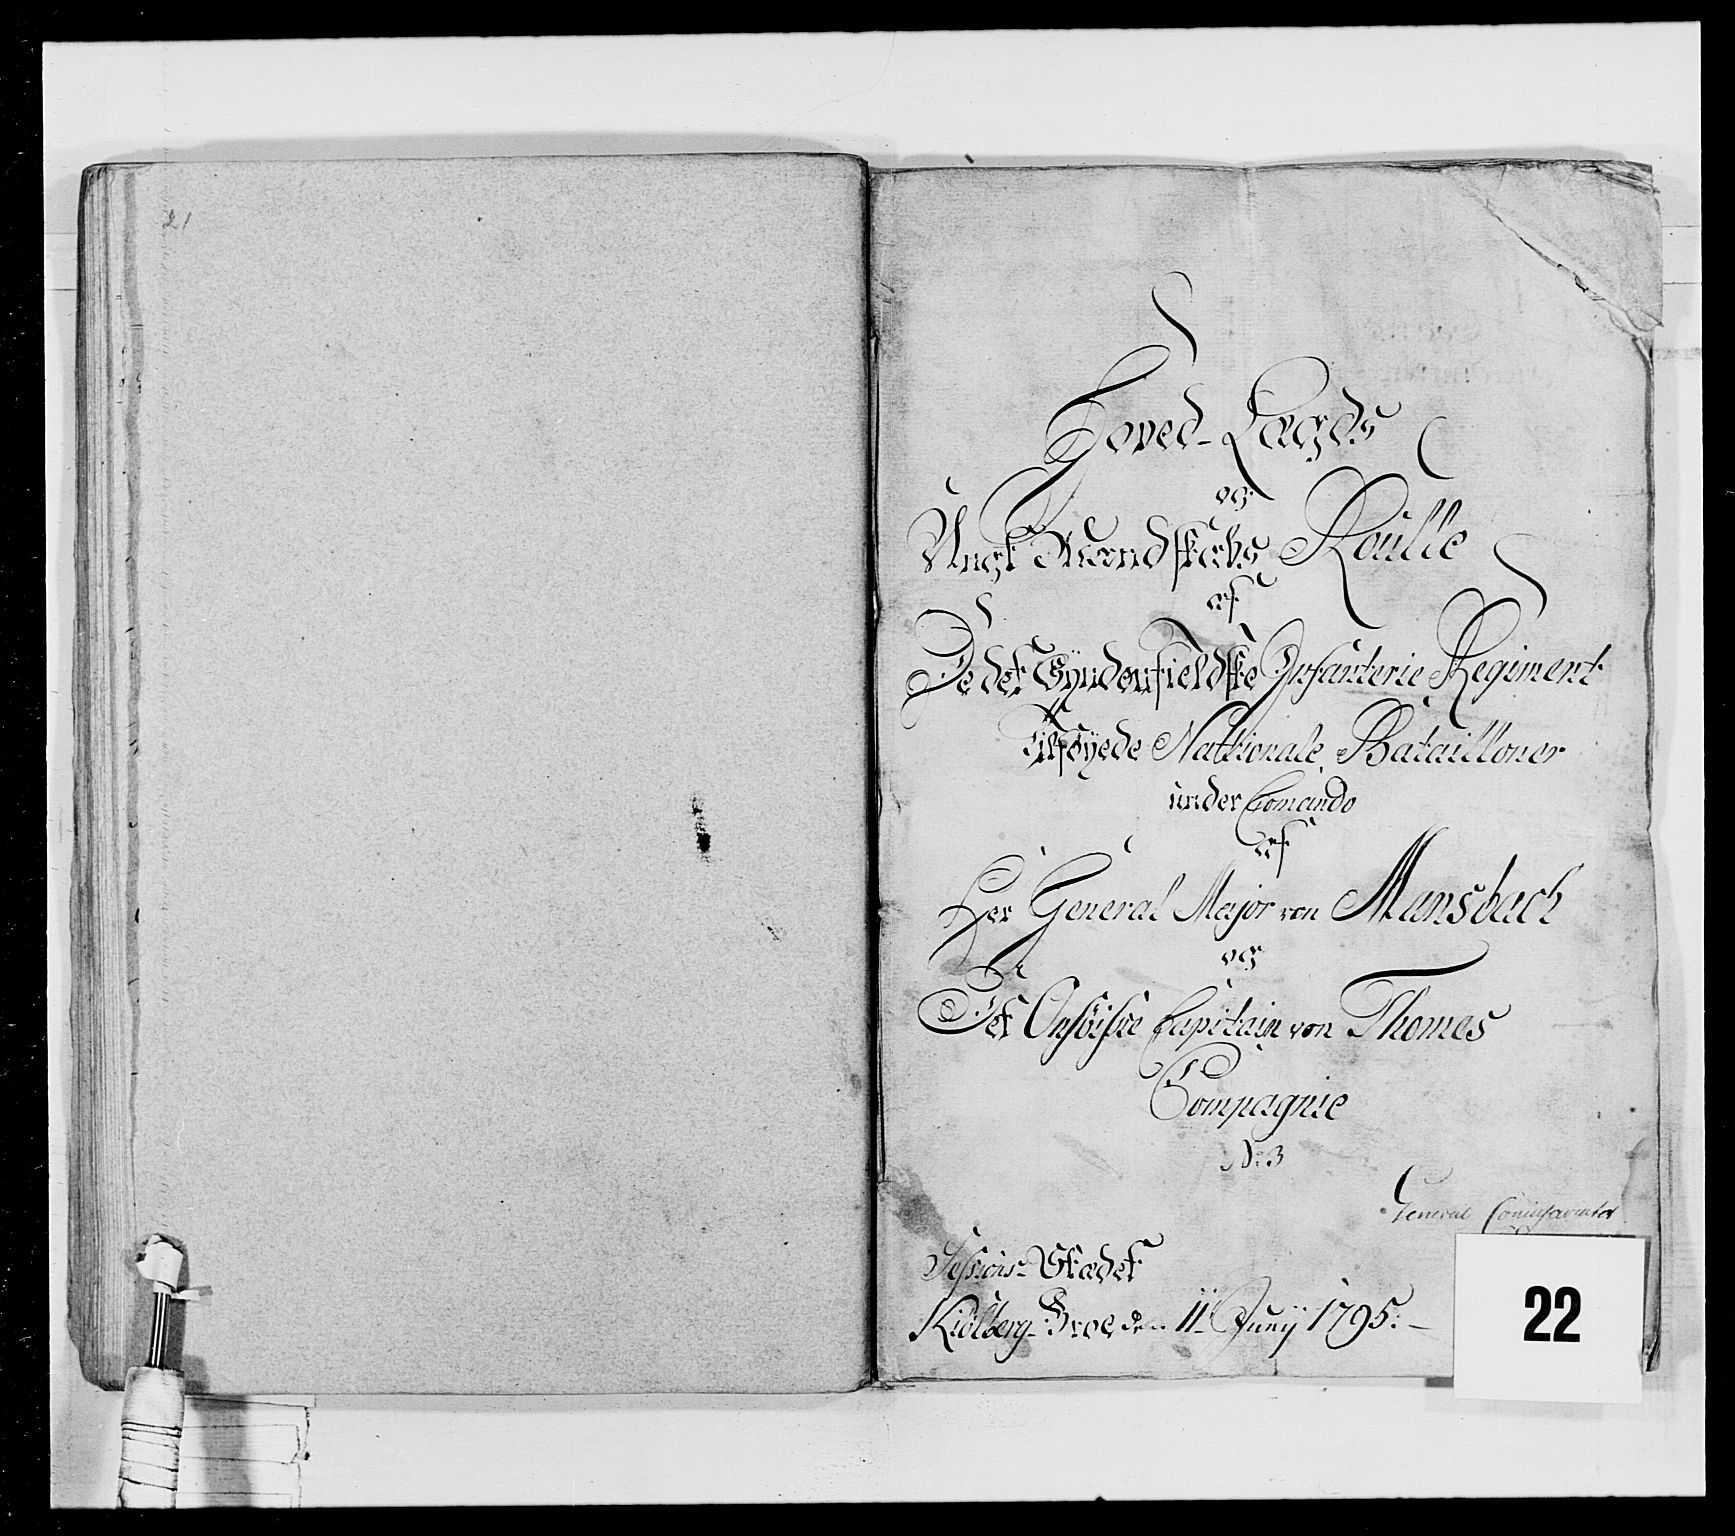 21
Hoved-Lægds
og
Ungt Mandskabs Roulle
af
De det Syndenfieldske Infanterie Regiment
tilføyede Nattionale Batailloner
under Comando
af
Her General Major von Mansbach
og
Det Onsöiske Capitain von Thomes
Compagnie
No: 3
General Comissariatet
Sessions-Stædet
Kiölberg-Broe den 11te Junij 1795.
22